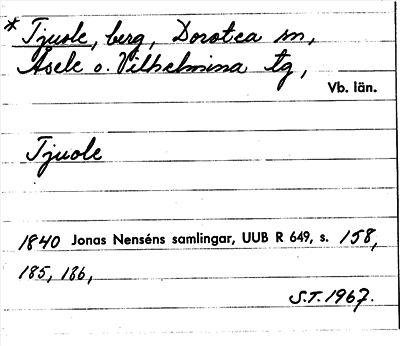 *Tjuole, berg, Dorotea sn,
Åsele o. Vilhelmina tg,
Vb. län.
Tjuole
1840 Jonas Nenséns samlingar, UUB R 649, s. 158,
185, 186,
S.T. 1967.